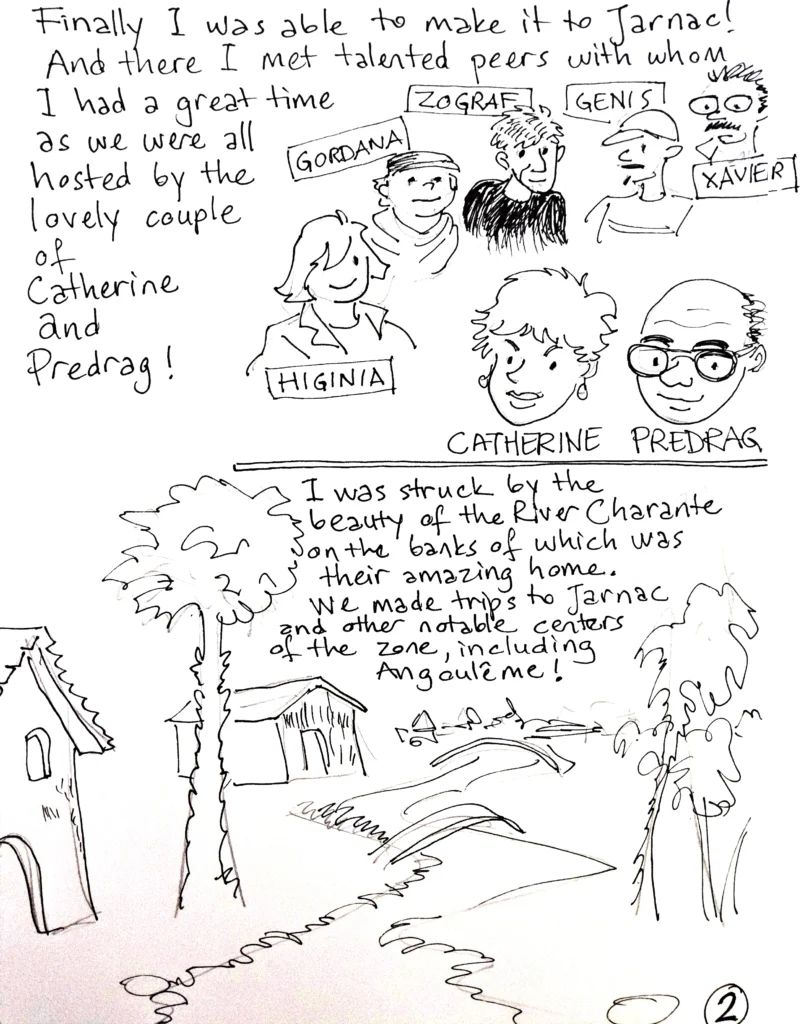 Finally I was able to make it to Jarnac!
And there I met talented peers with whom
I had a great time
as we were all
hosted by the
lovely couple
of
Catherine
and
Predrag!
ZOGRAF
GENIS
GORDANA
XAVIER
HIGINIA
CATHERINE PREDRAG
I was struck by the
beauty of the River Charante
on the banks of which was
their amazing home.
We made trips to Jarnac
and other notable centers
of the zone, including
Angoulême!
2